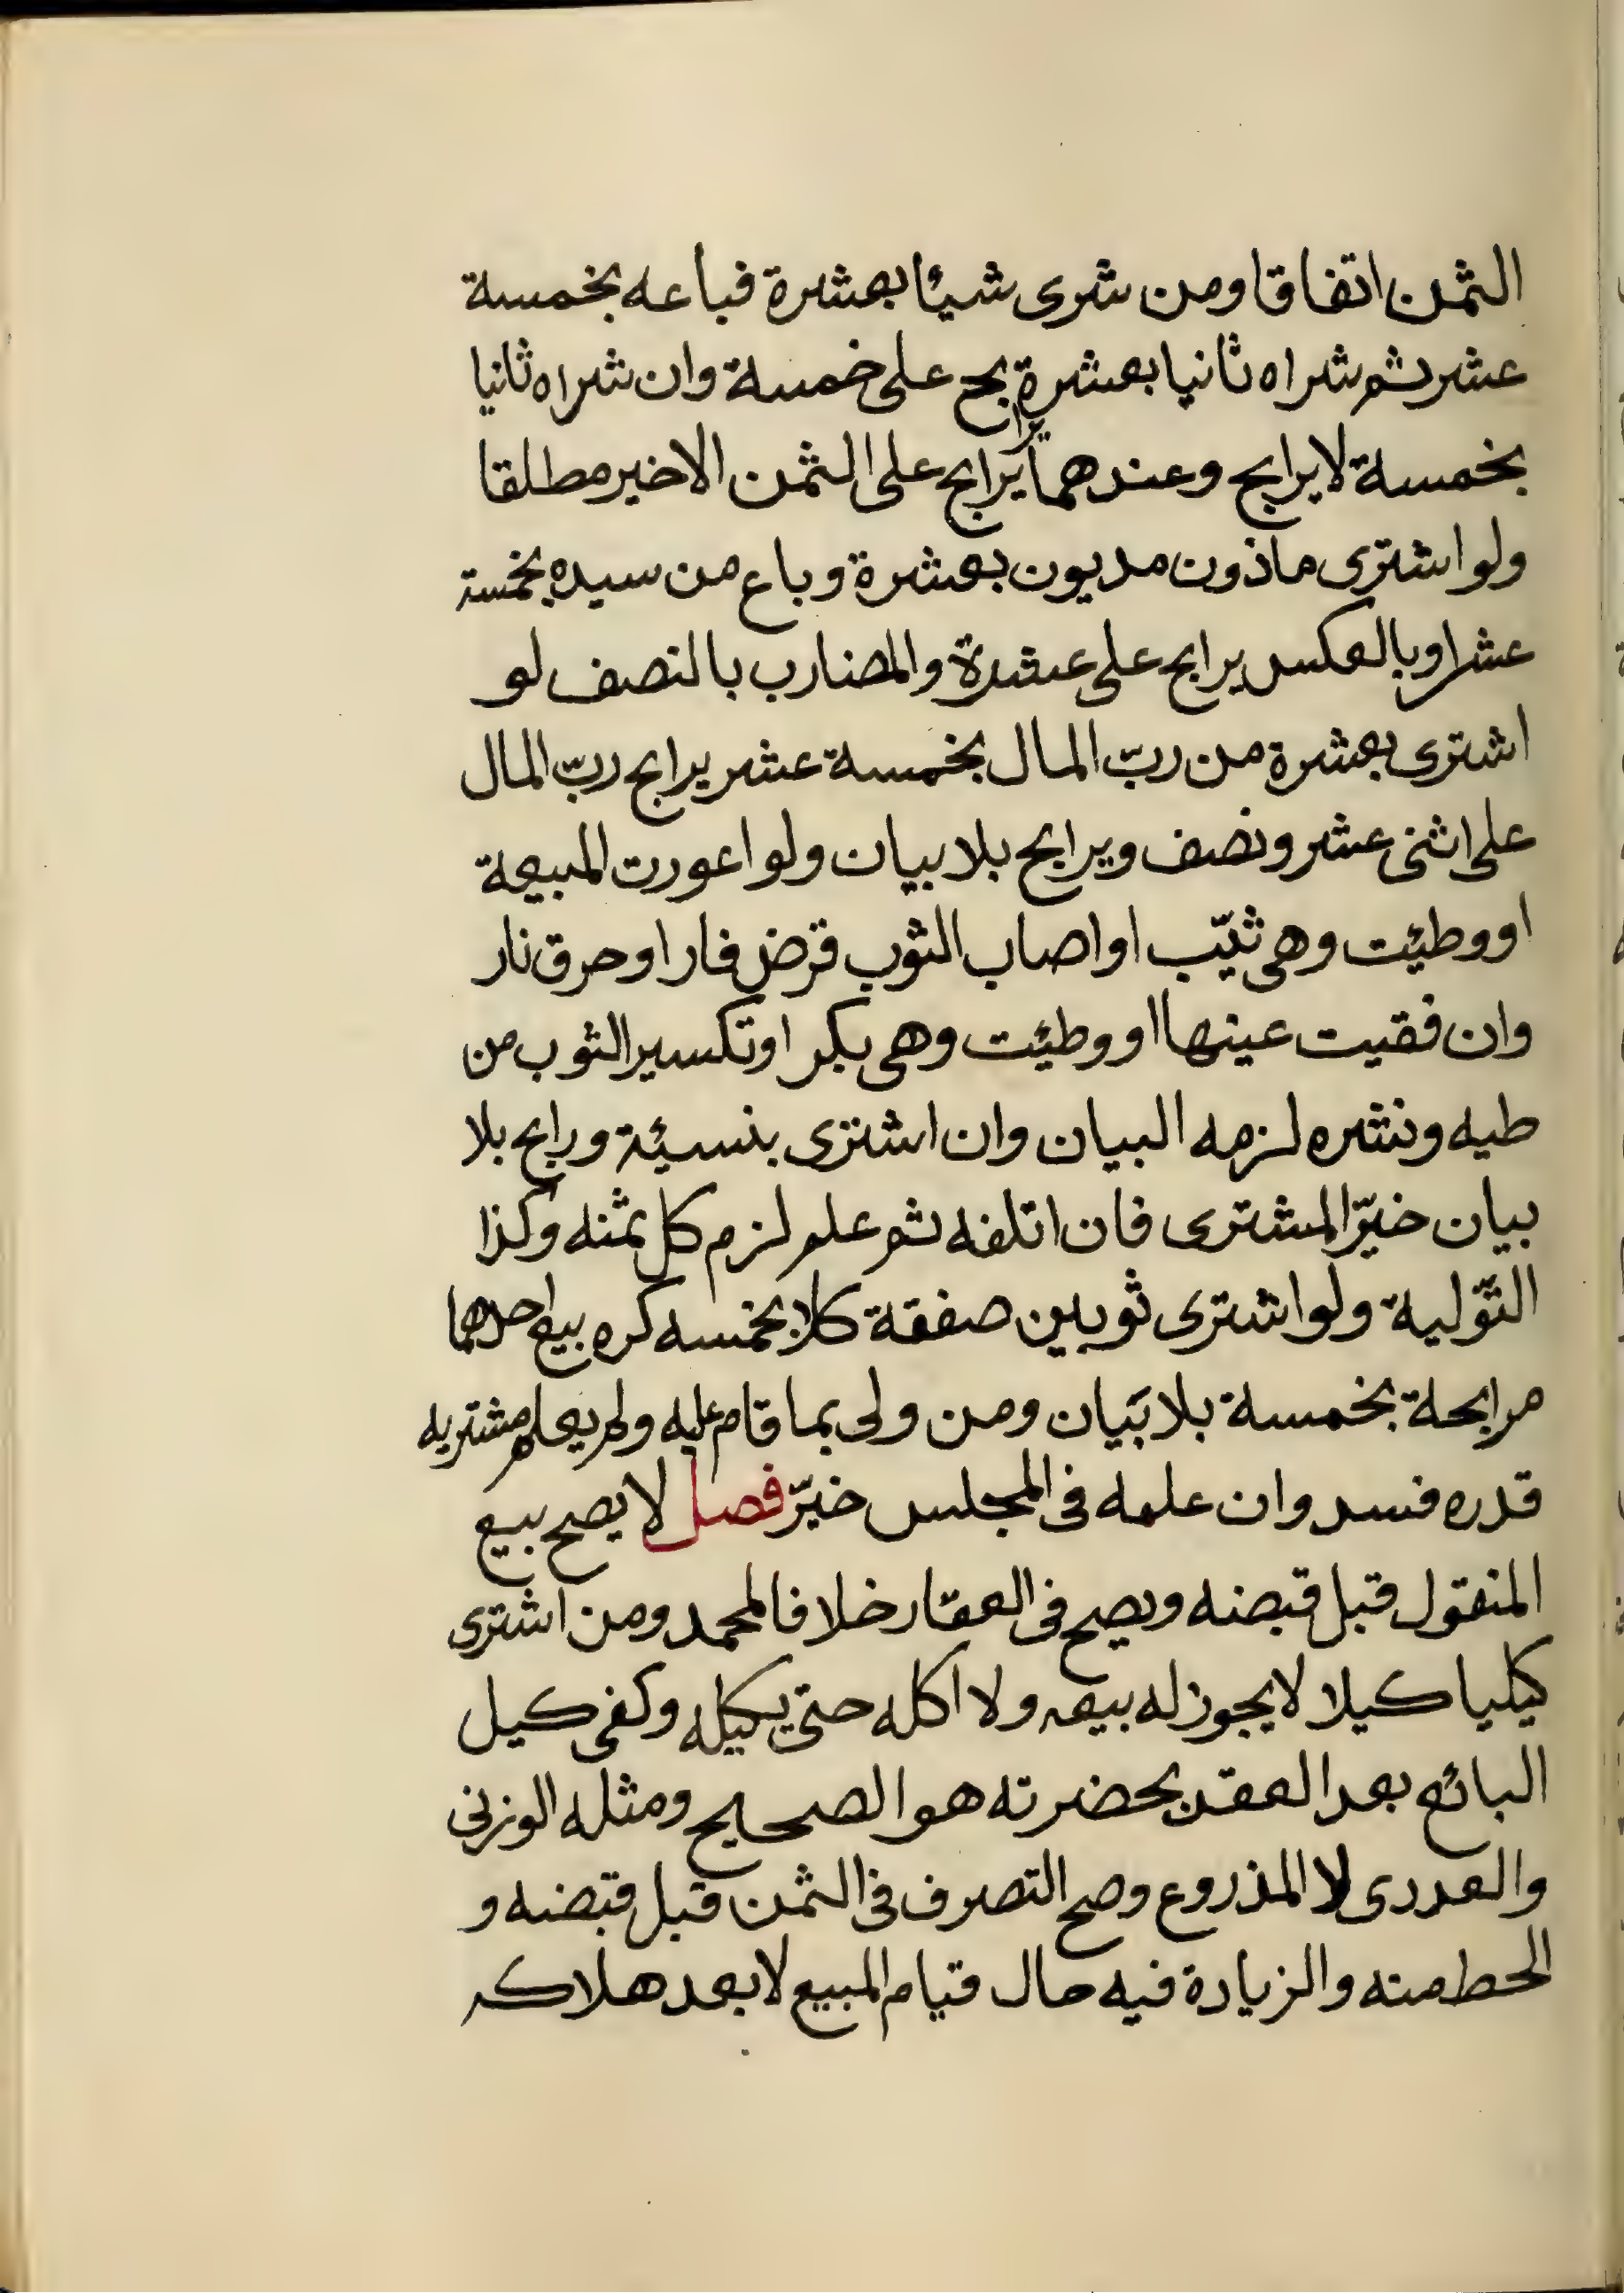 الثمن اتفاقا ومن شرى شيئا بعشرة فباعه بخمسة
عشر ثم شراه ثانيا بعشرة يرابح على خمسة وان شراه ثانيا
بخمسة لا يرابح وعندهما يرابح على الثمن الاخير مطلقا
ولو اشترى ماذون مديون بعشرة وباع من سيده بخمسة
عشر او بالعكس يرابح على عشرة والمضارب بالنصف لو
اشترى بعشرة من ربّ المال بخمسة عشر يرابح ربّ المال
على اثنى عشر ونصف ويرابح بلا بيان ولو اعورت المبيعة
او وطيئت وهى ثيّب او اصاب الثوب قرض فار او حرق نار
وان فقيت عينها او وطيئت وهى بكر او تكسير الثوب من
طيه ونشره لزمه البيان وان اشترى بنسيئة ورابح بلا
بيان خيّر المشترى فان اتلفه ثم علم لزم كل ثمنه وكذا
التّولية ولو اشترى ثوبين صفقة كلا بخمسه كره بيع احدهما
مرابحة بخمسة بلا بَيان ومن ولى بما قام عليه ولم يعلم مشتريه
قدره فسد وان علمه فى المجلس خيّر فصل لا يصح بيع
المنقول قبل قبضه ويصح فى العقار خلافا لمحمد ومن اشترى
كيليا كيلا لا يجوز له بيعه ولا اكله حتى يكيله وكفى كيل
البائع بعد العقد بحضرته هو الصحيح ومثله الوزنى
والعددى لا المذروع وصح التصرف فى الثمن قبل قبضه و
الحط منه والزيادة فيه حال قيام المبيع لا بعد هلاكه